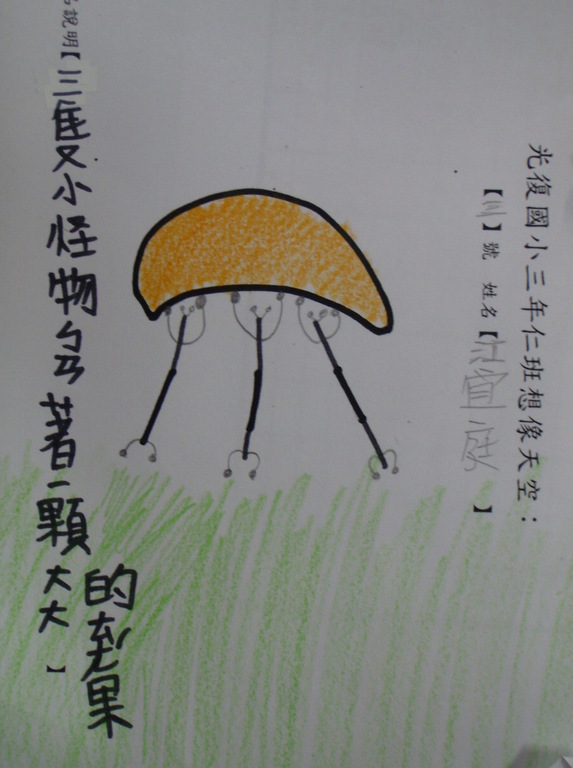 光復國小三年仁班想像天空：
【三】號 姓名【江宜庭】
說明【三隻小怪物ㄅㄢ著一顆大大
的果】